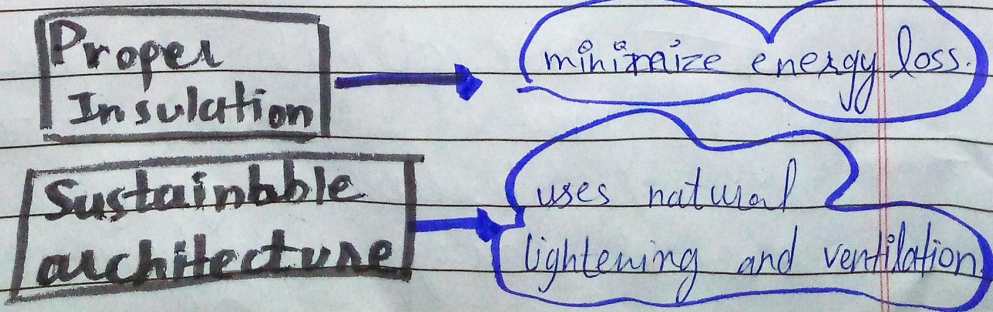 Proper
Insulation
minimaize energy loss.
Sustainable
architecture
uses natural
lightening and ventilation